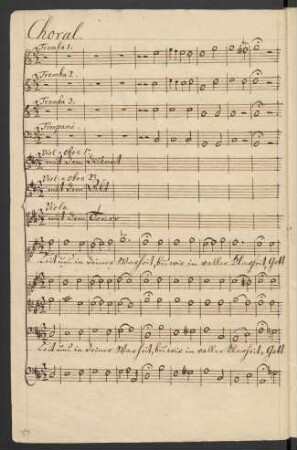 Choral.
Tromba 1.
Tromba 2.
Tromba 3.
Timpani.
Viol. e Oboe 1
mit dem Discant
Viol. e Oboe 2
mit dem Alt
Viola
mit dem Tenor
Leit uns in deiner Warheit, bis wir in voller Klarheit, Gott
Leit uns in deiner Warheit, bis wir in voller Klarheit, Gott